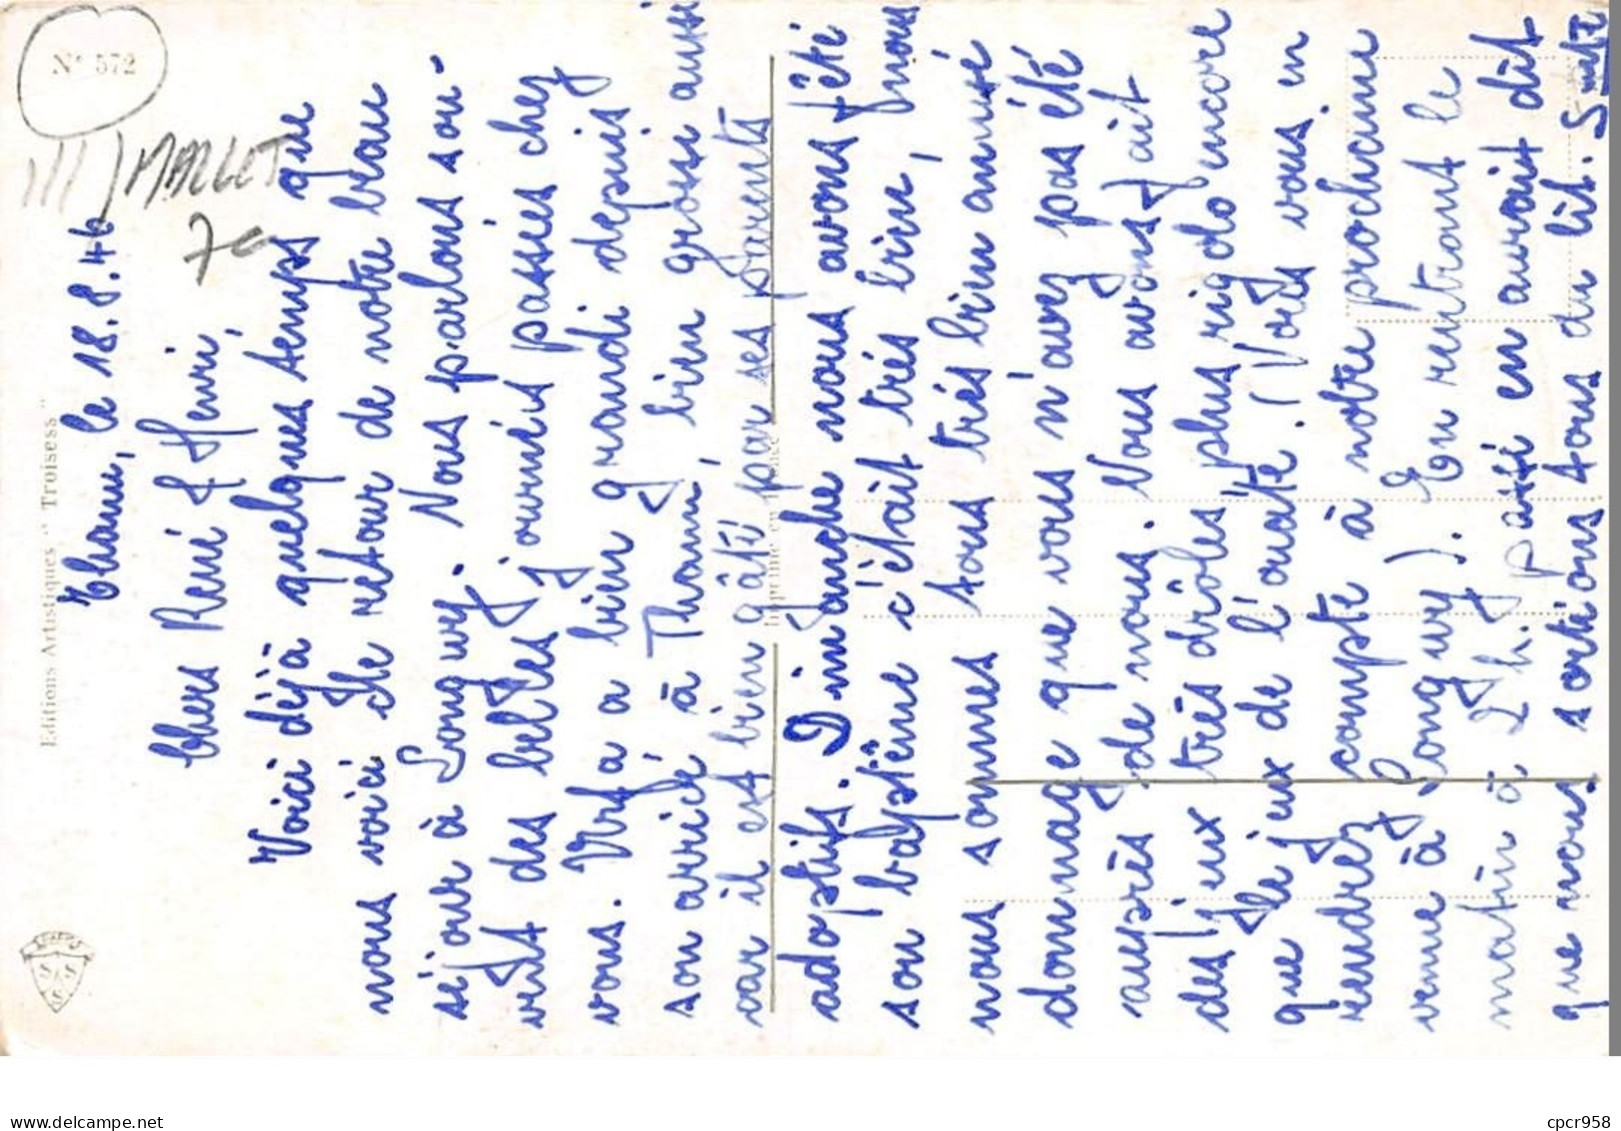 Editions Artistiques "Troisess"
N° 572
MARGET
70
Thann, le 18.8.46
Chers René & Henri,
Voici déjà quelques temps que
nous voici de retour de notre beau
séjour à Longwy. Nous parlons sou-
vent des belles journées passées chez
vous. a bien grandi depuis
son arrivé à Thann, bien grossi aussi
car il est bien gâté par ses parents
adoptifs. Dimanche nous avons fêté
son baptême c'était très bien, nous
nous sommes tous très bien amusé
dommage que vous n'avez pas été
auprès de nous. Nous avons fait
des jeux très drôles plus rigolo encore
que le jeux de l'ouate. (Vous vous en
rendrez compte à notre prochaine
venue à Longwy). En rentrant le
matin à 2h. passé en aurait dit
que nous sortions tous du lit. Suite
Imprimé en France
cpcr958